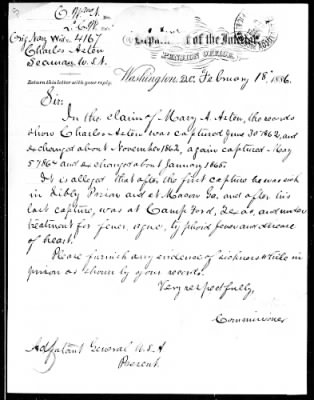 Orig Nav Wid. 4167
Charles Aslen
Seaman, U.S.N.
Department of the Interior,
PENSION OFFICE,
Return this letter with your reply.
Washington, D.C. February 18" 1886.
Sir:
In the claim of Mary A. Aslen, the records
show Charles Aslen was captured June 30 1862, and
exchanged about November 1862, again captured May
5" 1864 and exchanged about January 1865.
It is alleged that after the first capture he was sick
in Libby Prison and at Macon Ga. and after his
last capture, was at Camp Ford, Texas, and under
treatment for fever, ague, typhoid fever and disease
of heart.
Please furnish any evidence of sickness while in
prison as shown by your records.
Very respectfully,
Commissioner
Adjutant General U.S.A
Present.